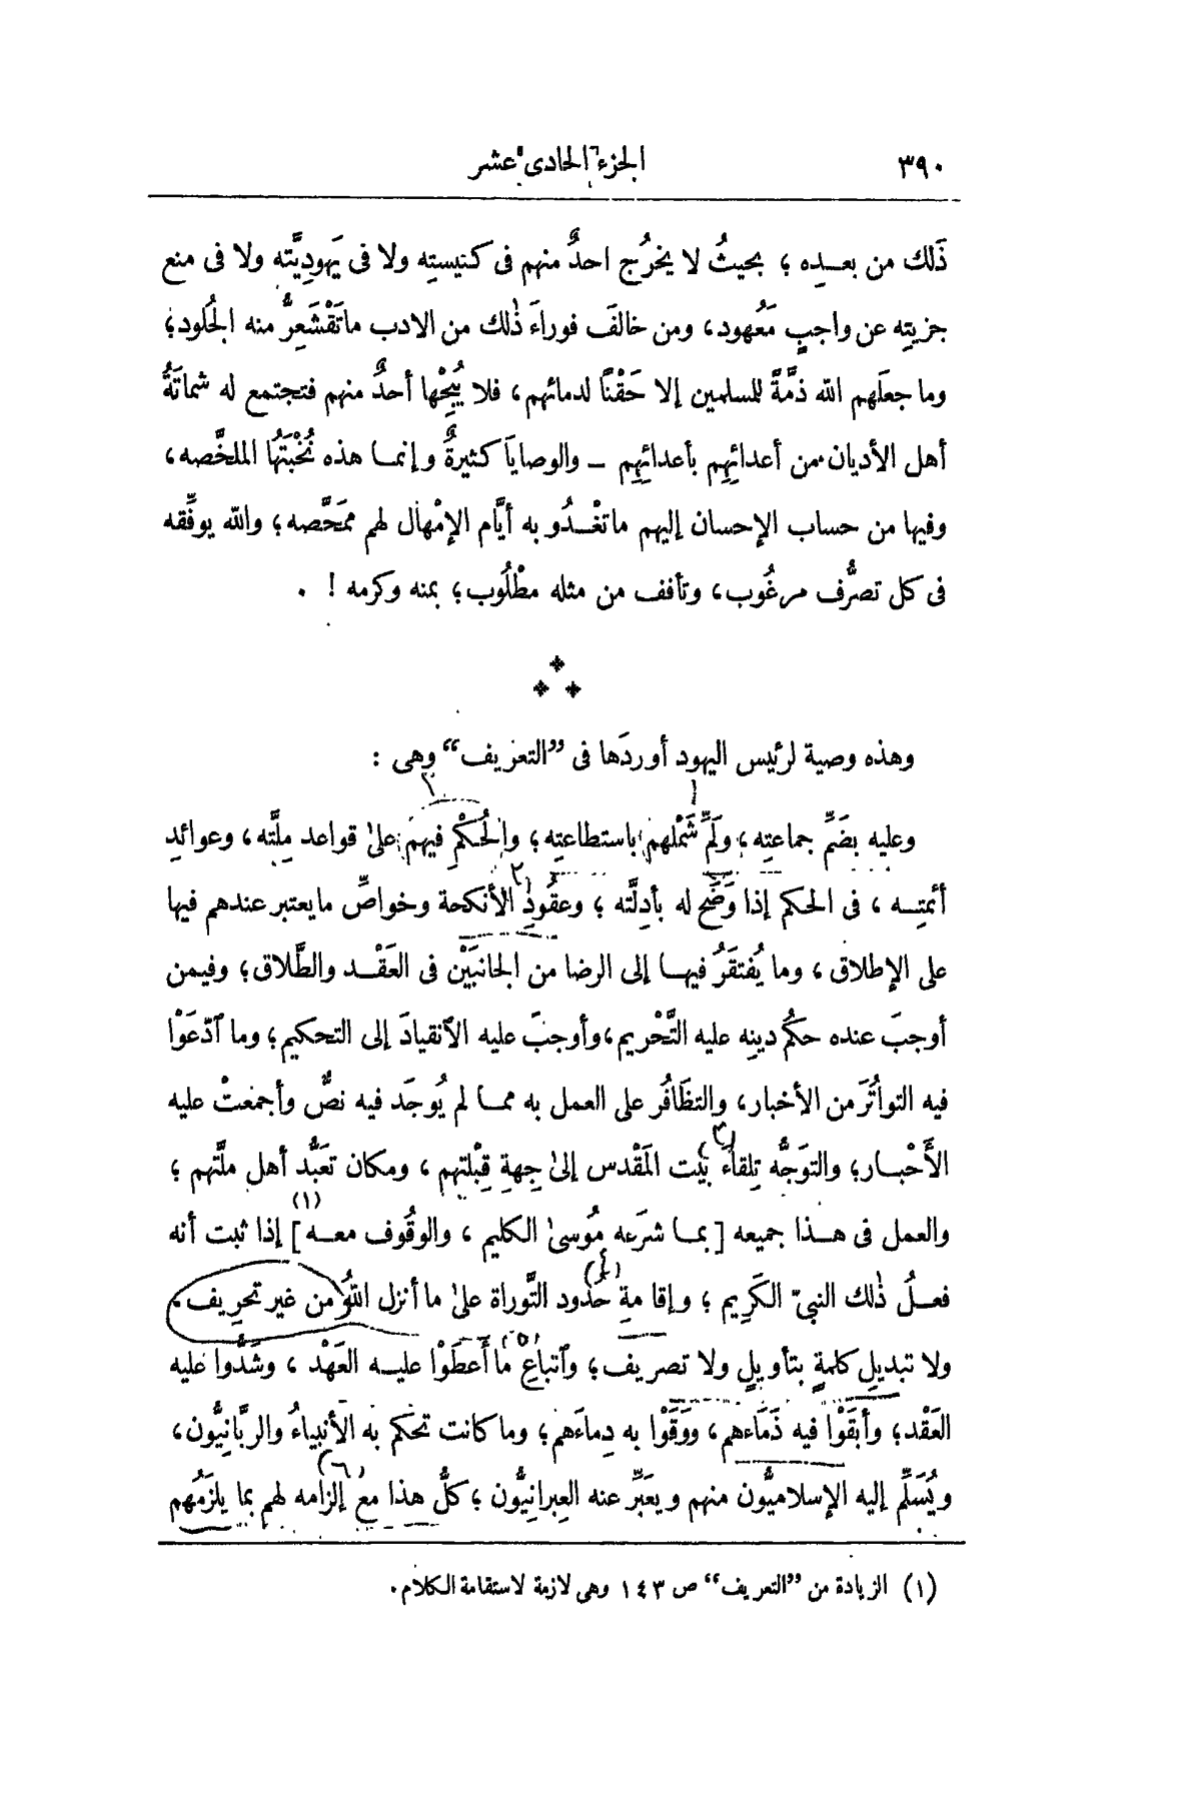 ٣٩٠ الجزء الحادى عشر
ذَلك من بعـــدِه ؛ بحيثُ لا يخرُج احدٌ منهم فى كنيستِه ولا فى يَهوديَّته ولا فى منع
جزيتِه عن واجبٍ مَعْهود، ومن خالفَ فوراءَ ذٰلك من الادب ماتَقْشَعِرُّ منه الجُلود؛
وما جعلَهم اللّه ذمَّةً للمسلمين إلا حَقْنًا لدمائهم، فلا يُبِحْها أحدٌ منهم فتجتمع له شماتَةُ
أهل الأديان من أعدائِهِم بأعدائِهِم ــ والوصايَا كثيرةٌ وإنمــا هذه نُخْبَتُها الملخَّصه،
وفيها من حساب الإحسان إليهم ماتغْــدُو به أيَّام الإمْهال لهم ممَحَّصه؛ واللّه يوفِّقه
فى كل تصرُّف مرغُوب، وتأفف من مثله مطْلُوب؛ بمنه وكرمه ! .
وهذه وصية لرئيس اليهود أوردَها فى ”التعريف“ وهى :
وعليه بضَمِّ جماعتِه، ولَمِّ شَمْلهم باستطاعتِه؛ والحُكْمِ فيهم علىٰ قواعد مِلَّته، وعوائدِ
أئمتِــه ، فى الحكم إذا وَضَح له بأدِلَّته ؛ وعقُودِ الأنكحة وخواصِّ مايعتبر عندهم فيها
على الإطلاق، وما يُفتقَرُ فيهــا إلى الرضا من الجانبَيْن فى العَقْــد والطَّلاق؛ وفيمن
أوجبَ عنده حكُم دينِه عليه التَّحْريم، وأوجبَ عليه الٱنقيادَ إلى التحكيم؛ وما ٱدّعَوْا
فيه التواتُرَ من الأخبار، والتظَافُر على العمل به ممــا لم يُوجَد فيه نصٌّ وأجمعتْ عليه
الأَحْبــار؛ والتوَجُّه تِلقاءَ بَيْت المَقْدس إلىٰ جِهةِ قِبْلتهم ، ومكان تعَبُّد أهل ملَّتهم ؛
والعمل فى هــذا جميعه [بمــا شرَعه مُوسىٰ الكليم ، والوقُوف معــه] (١) إذا ثبت أنه
فعــلُ ذٰلك النبىّ الكَرِيم ؛ وإقامةِ حُدود التَّوراة علىٰ ما أنزل اللهُ من غير تحرِيف،
ولا تبديلِ كلمةٍ بتأويلٍ ولا تصريف؛ وٱتباعِ ما أَعطَوْا عليــه العَهْد ، وشَدُّوا عليه
العَقْد؛ وأبقَوْا فيه ذَمَاءهم، ووَقَوْا به دِماءَهم؛ وما كانت تحكم به الأنبياءُ والربَّانِيُّون،
ويُسَلِّم إليه الإسلاميُّون منهم ويعَبِّر عنه العِبرانِيُّون ؛ كلُّ هذا مع إلزامه لهم بما يلزَمُهم
(١) الزيادة من ”التعريف“ ص ١٤٣ وهى لازمة لاستقامة الكلام.